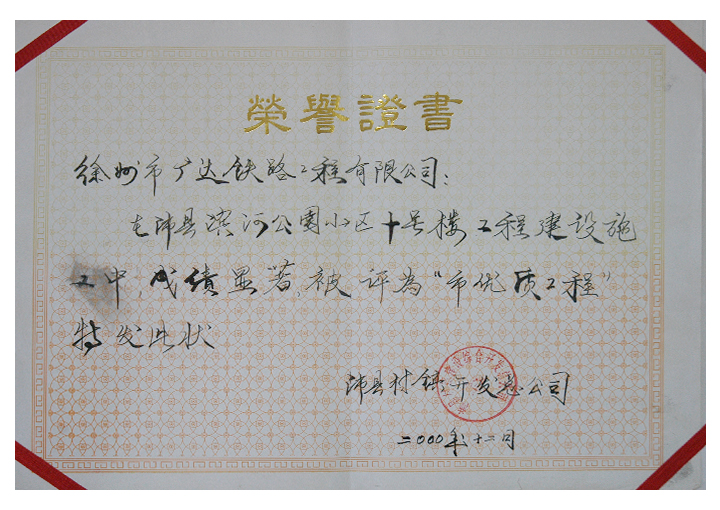 榮譽證書
徐州市广达铁路工程有限公司：
在沛县滨河公园小区十号楼工程建设施
工中，成绩显著，被评为“市优质工程”
特发此状
沛县村镇开发总公司
二000年十二月